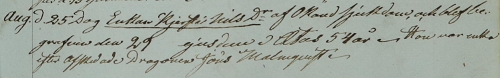 Aug d 25 Dog Enkan Kjersti Nils Dr af Okänd sjukdom, och blef be-
grafven den 29 ejusdem Ætas 54 år. Hon var enka
efter Afskedade Dragonen Jöns Malmquist